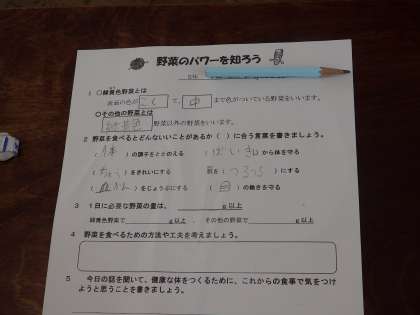 野菜のパワーを知ろう
1 ○緑黄色野菜とは
表面の色が こく て、 中 まで色がついている野菜をいいます。
○その他の野菜とは
緑黄色 野菜以外の野菜をいいます。
2 野菜を食べるとどんないいことがあるか( )に合う言葉を書きましょう。
( 体 )の調子をととのえる ( ばいきん )から体を守る
( ちょう )をきれいにする 肌を( つるつる )にする
( )をじょうぶにする ( 目 )の働きを守る
3 1日に必要な野菜の量は、 g以上
緑黄色野菜で g以上 、その他の野菜で g以上
4 野菜を食べるための方法や工夫を考えましょう。
5 今日の話を聞いて、健康な体をつくるために、これからの食事で気をつけ
ようと思うことを書きましょう。